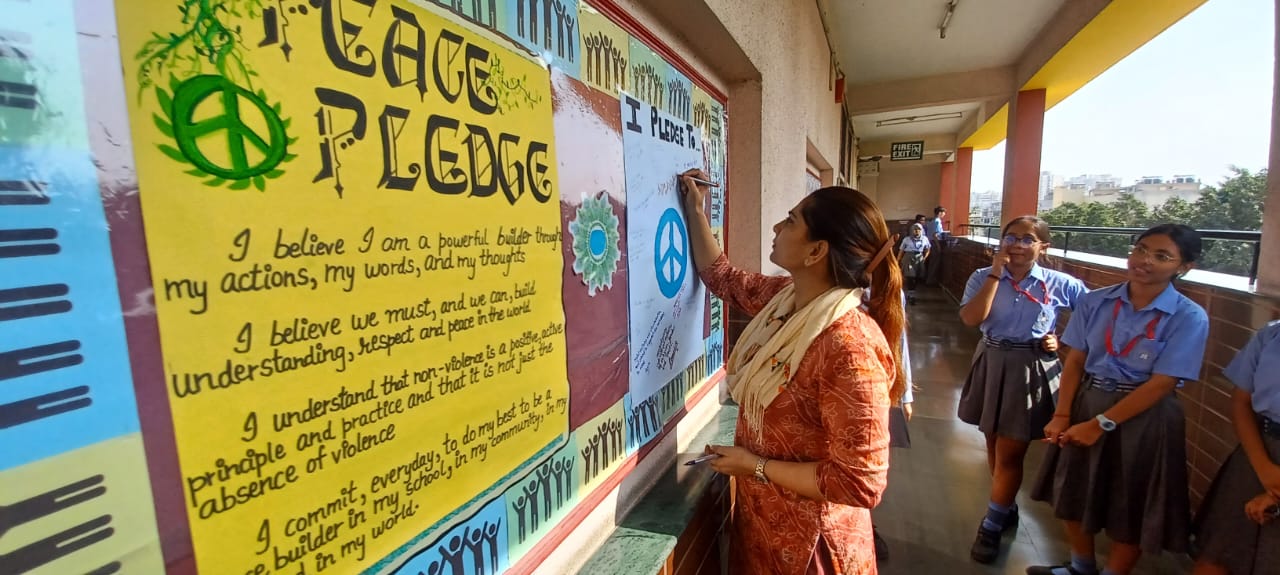 PEACE
PLEDGE
I believe I am a powerful builder through
my actions, my words, and my thoughts
I believe we must, and we can, build
understanding, respect and peace in the world
I understand that non-violence is a positive, active
principle and practice and that it is not just the
absence of violence
I commit, everyday, to do my best to be a
builder in my school, in my community, in my
in my world.
I PLEDGE TO...
FIRE
EXIT